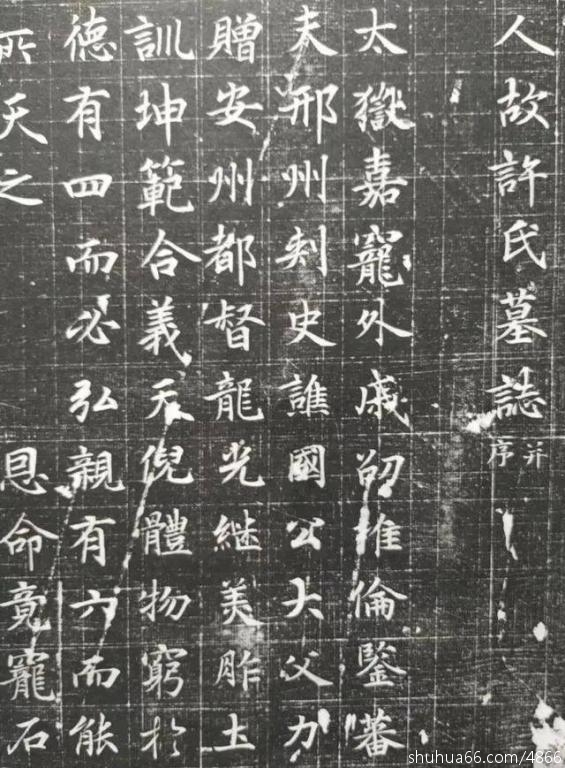 人故許氏墓誌并序
太嶽嘉寵外戚劭推倫鑒蕃
夫邢州刾史譙國公大父力
贈安州都督龍光継美胙土
訓坤範合義天倪體物窮於
德有四而必弘親有六而能
所天之 恩命竟寵石
shuhua66.com/4866